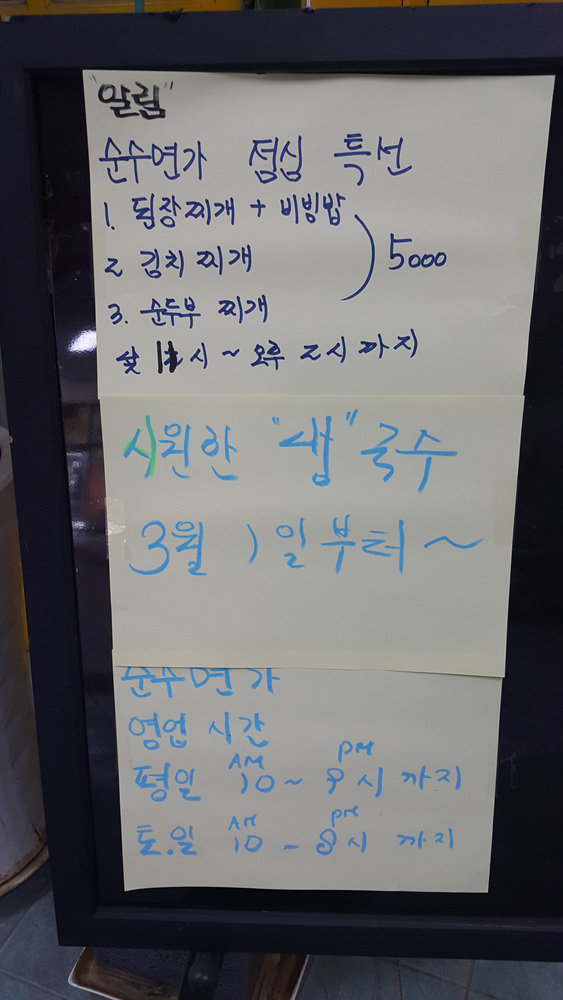 "알림"
순수연가 점심 특선
1. 된장찌개 + 비빔밥
2 김치찌개
3. 순두부 찌개
5000
낮 11시 ~ 오후 2시까지
시원한 "쌥" 국수
3월 1일부터 ~
순수연가
영업 시간
평일 AM 10 ~ PM 9시 까지
토.일 AM 10 - PM 8시 까지